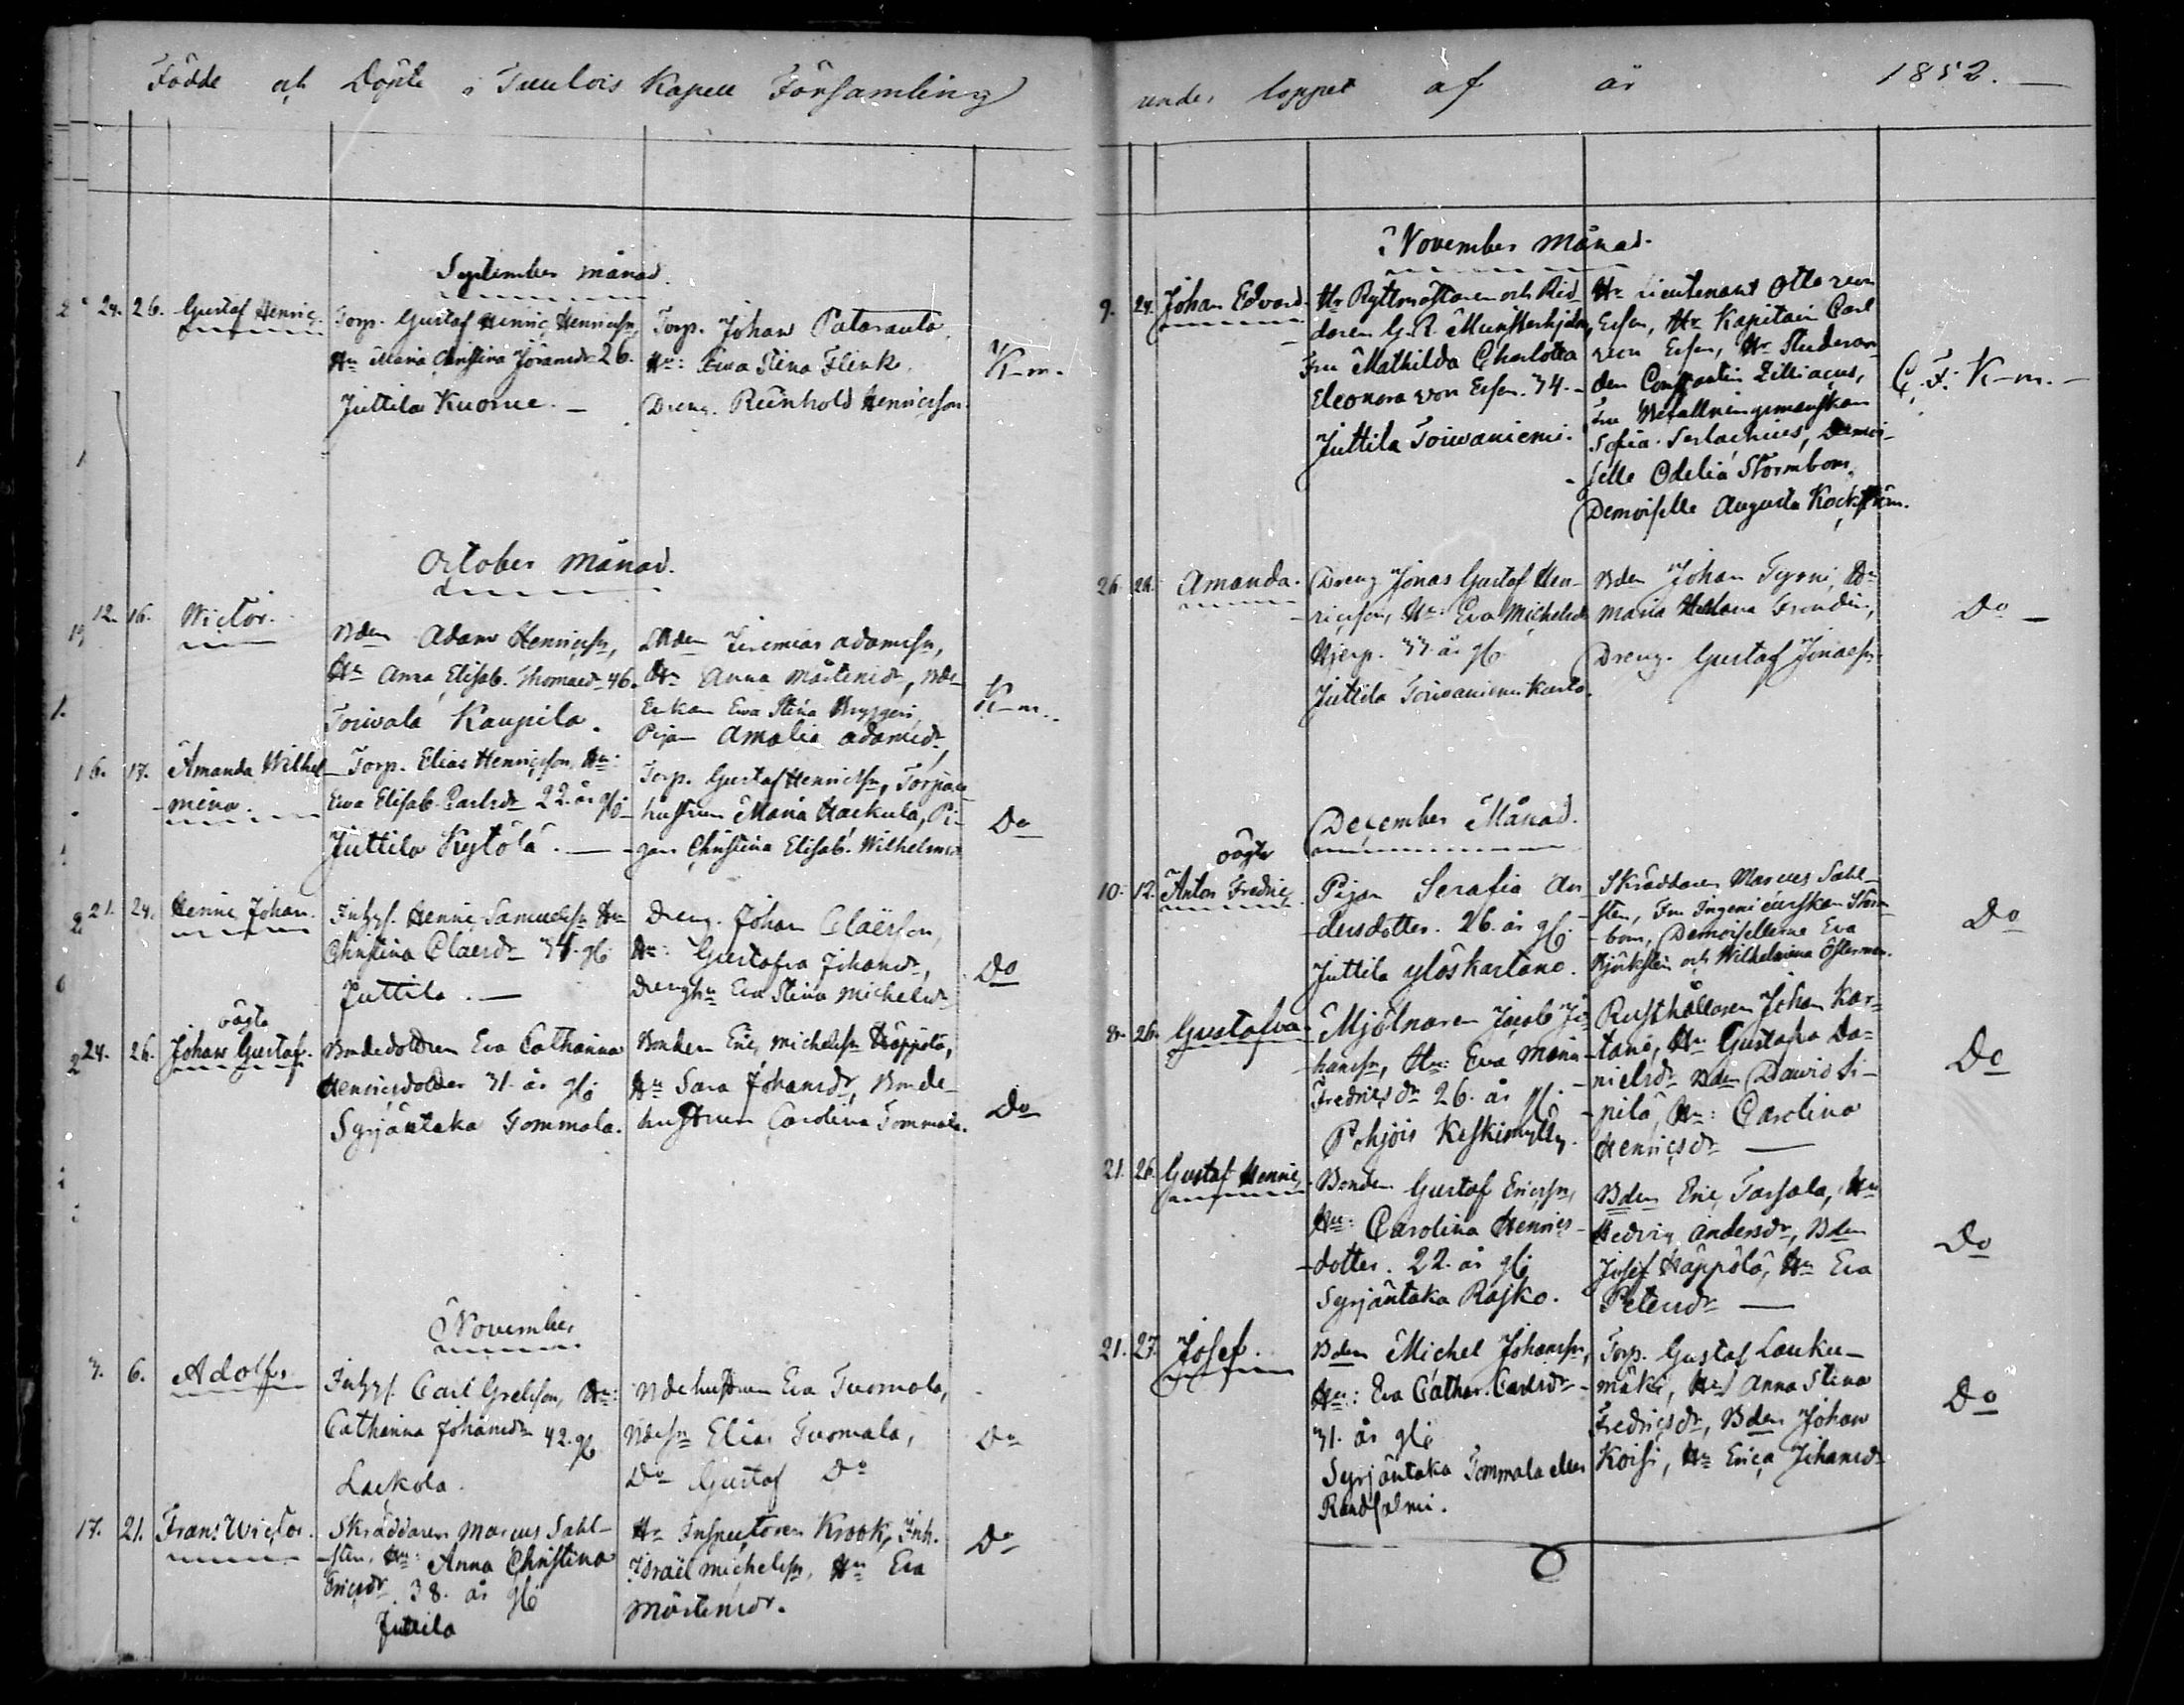 Födde och Döpte i Tuulois Kapell Församling
September månad.
24. 26. Gustaf Henric.
Torp. Gustaf Henric Henricssn,
Hu Maria Christina Göransdr 26.
Juttila Kuorue. —
Torp. Johan Patarauta
Hu: Ewa Stina Flink.
Dreng. Reinhold Henricsson.
K-m.
October Månad.
12. 16. Wictor.
Bden Adam Henricssn,
Hu Anna Elisab. Thomasdr 46.
Toivala Kaupila.
Bden Jeremias Adamssn,
Hu Anna Mårtensdr, Bde-
Enkan Ewa Stina Bryggeri,
Pigan Amalia Adamsdr
K-m.
16. 17. Amanda Wilhel-
mina.
Torp. Elias Henricsson, Hu:
Ewa Elisab. Carlsdr 22. år gl:
Juttila Kytölä. —
Torp. Gustaf Henricssn, Torpare
hustrun Maria Hackula, Pi-
gan Christina Elisab. Wilhelmsdr
Do
21. 24. Henric Johan.
Inhys. Henric Samuelssn Hu
Christina Claesdr 34. gl:
Juttila. —
Dreng. Johan Claësson,
Hu: Gustafva Johansdr,
Drenghu Eva Stina Michelsdr
Do
oägta
24. 26. Johan Gustaf.
Bondedottren Eva Catharina
Henricsdotter 31. år gl:
Syrjäntaka Tommola.
Bonden Eric Michelssn Häppölä,
Hu Sara Johansdr, Bonde-
hustrun Carolina Tommola.
Do
November
3. 6. Adolf.
Inhys. Carl Grelsson, Hu:
Catharina Johansdr 42. gl.
Laekola.
Bdehustrun Eva Tuomola,
Bdesn Elias Tuomola,
Do Gustaf Do
Do
17. 21. Frans Wictor.
Skräddaren Marcus Sahl-
sten, Hu: Anna Christina
Ericsdr 38. år gl:
Juttila
Hr Inspectoren Krook, Inh.
Israël Michelssn, Hu Eva
Mårtensdr.
Do
under loppet af år 1852. —
November månad.
9. 24. Johan Edvard.
Hr Ryttmästaren och Rid-
daren G. R. Munsterhjelm,
Fru Mathilda Charlotta
Eleonora von Essen. 34. -
Juttila Toivaniemi.
Hr Lieutenant Otto von
Essen, Hr Kapitain Carl
von Essen, Hr Studeran-
den Constantin Zilliacus,
Fru Befallningsmanskan
Sofia Serlachius, Demoi-
selle Odelia Stormbom,
Demoiselle Augusta Kockström.
C. F. K-m. —
26. 28. Amanda.
Dreng Jonas Gustaf Hen-
ricsson, Hu: Eva Michelsdr
Hjerp. 33 år gl.
Juttila Toivaniemi Karlo.
Bden Johan Tyrni, Hu
Maria Helena Frendin,
Dreng. Gustaf Jonaessn
Do —
December Månad.
oägta
10. 12. Anton Fredric
Pigan Serafia An-
dersdotter. 26. år gl:
Juttila Ylöskartano.
Skräddaren Marcus Sahl-
sten, Fru Ingenieurskan Storm-
bom, Demoisellerna Eva
Björksten och Wilhelmina Österman.
Do
26. Gustafva.
Mjölnaren Jacob Jo-
hanssn, Hu: Eva Maria
Fredricsdr 26. år gl. -
Pohjois Keskimylly.
Rusthållaren Johan Kar-
tano, Hu Gustafva Da-
nielsdr Bden Dawid Si-
pilä, Hu: Carolina
Henricsdr —
Do
21. 26. Gustaf Henric
Bonden Gustaf Ericssn,
Hu: Carolina Henrics-
dotter. 22. år gl:
Syrjäntaka Rajko.
Bden Eric Tassola, Hu
Hedvig Andersdr, Bden
Josef Häppölä, Hu Eva
Petersdr —
Do
21. 27. Josef.
Bden Michel Johanssn,
Hu: Eva Cathar. Carlsdr -
31. år gl:
Syrjäntaka Tommola eller
Randsalmi.
Torp. Gustaf Lauku-
mäki, Hu Anna Stina
Fredricsdr, Bden Johan
Koisi, Hu Erica Johansdr
Do